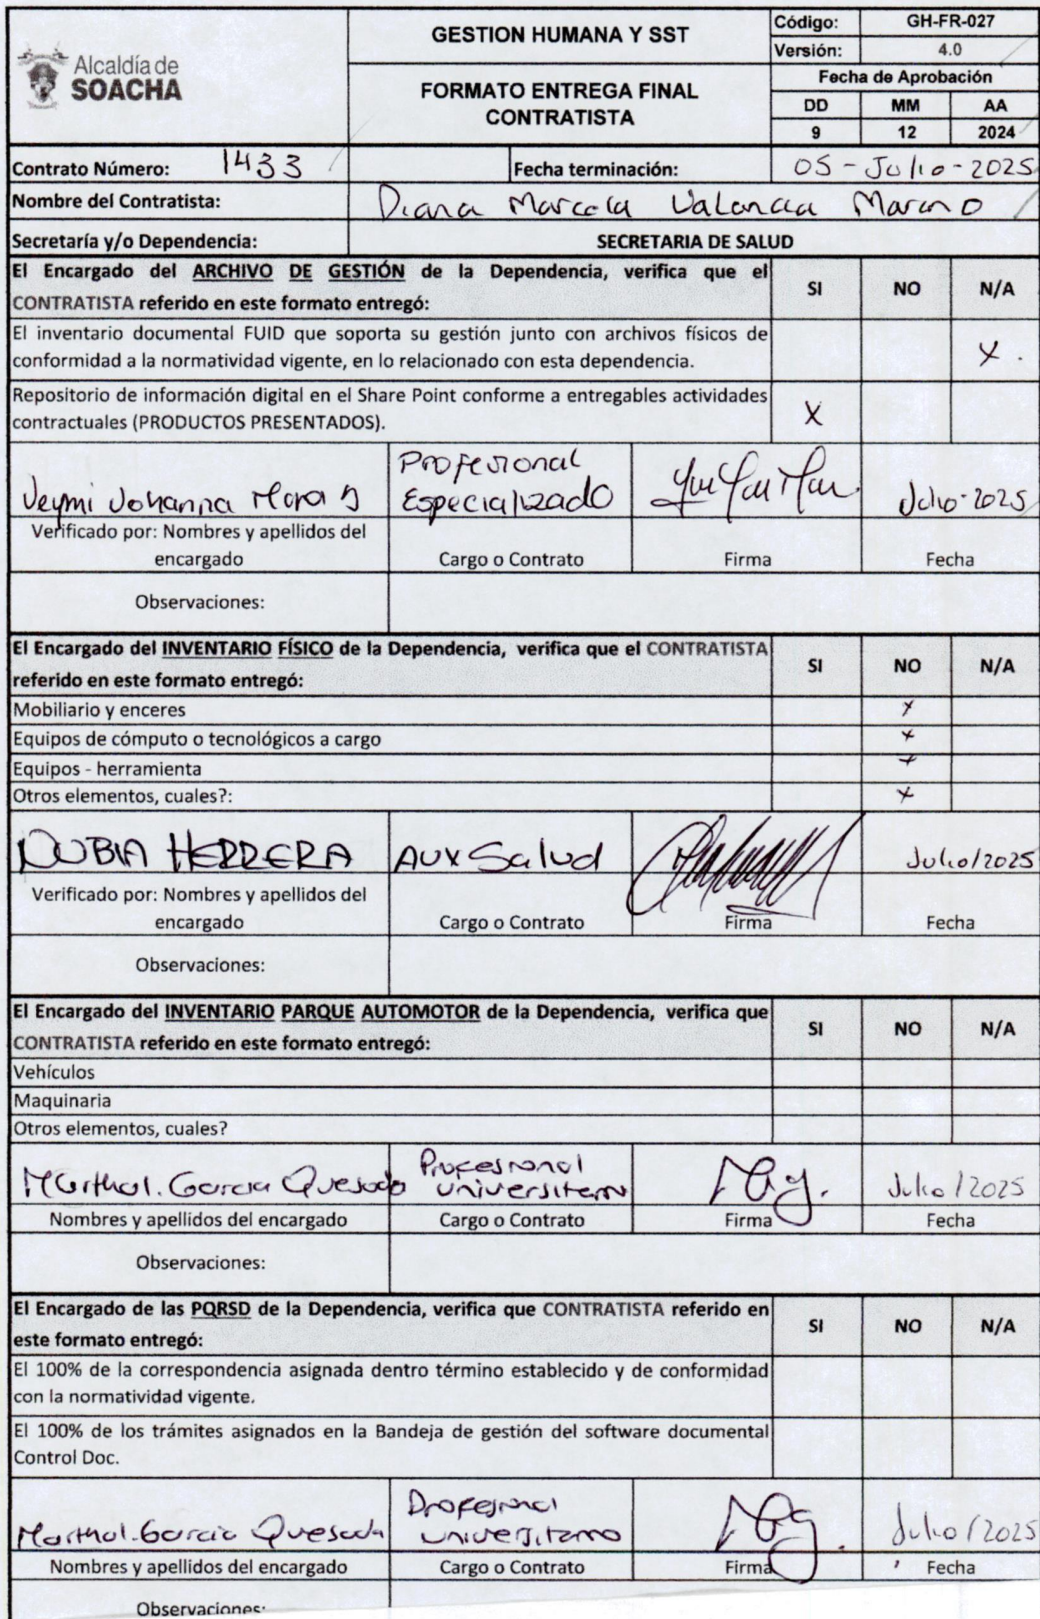 Alcaldía de
SOACHA
GESTION HUMANA Y SST
FORMATO ENTREGA FINAL
CONTRATISTA
Código: GH-FR-027
Versión: 4.0
Fecha de Aprobación
DD MM AA
9 12 2024
Contrato Número: 1433 Fecha terminación: 05 - Julio - 2025
Nombre del Contratista: Diana Marcela Valencia Mareno
Secretaría y/o Dependencia: SECRETARIA DE SALUD
El Encargado del ARCHIVO DE GESTIÓN de la Dependencia, verifica que el
CONTRATISTA referido en este formato entregó:
SI NO N/A
El inventario documental FUID que soporta su gestión junto con archivos físicos de
conformidad a la normatividad vigente, en lo relacionado con esta dependencia.
X
Repositorio de información digital en el Share Point conforme a entregables actividades
contractuales (PRODUCTOS PRESENTADOS).
X
Profesional
Yeymi Johanna Mora Especializado Julio-2025
Verificado por: Nombres y apellidos del
encargado Cargo o Contrato Firma Fecha
Observaciones:
El Encargado del INVENTARIO FÍSICO de la Dependencia, verifica que el CONTRATISTA
referido en este formato entregó:
SI NO N/A
Mobiliario y enceres X
Equipos de cómputo o tecnológicos a cargo X
Equipos - herramienta X
Otros elementos, cuales?: X
NUBIA HERRERA Aux Salud Julio/2025
Verificado por: Nombres y apellidos del
encargado Cargo o Contrato Firma Fecha
Observaciones:
El Encargado del INVENTARIO PARQUE AUTOMOTOR de la Dependencia, verifica que
CONTRATISTA referido en este formato entregó:
SI NO N/A
Vehículos
Maquinaria
Otros elementos, cuales?
Profesional
Martha I. Garcia Quesada Universitario Julio/2025
Nombres y apellidos del encargado Cargo o Contrato Firma Fecha
Observaciones:
El Encargado de las PQRSD de la Dependencia, verifica que CONTRATISTA referido en
este formato entregó:
SI NO N/A
El 100% de la correspondencia asignada dentro término establecido y de conformidad
con la normatividad vigente.
El 100% de los trámites asignados en la Bandeja de gestión del software documental
Control Doc.
Profesional
Martha I. Garcia Quesada Universitario Julio/2025
Nombres y apellidos del encargado Cargo o Contrato Firma Fecha
Observaciones: